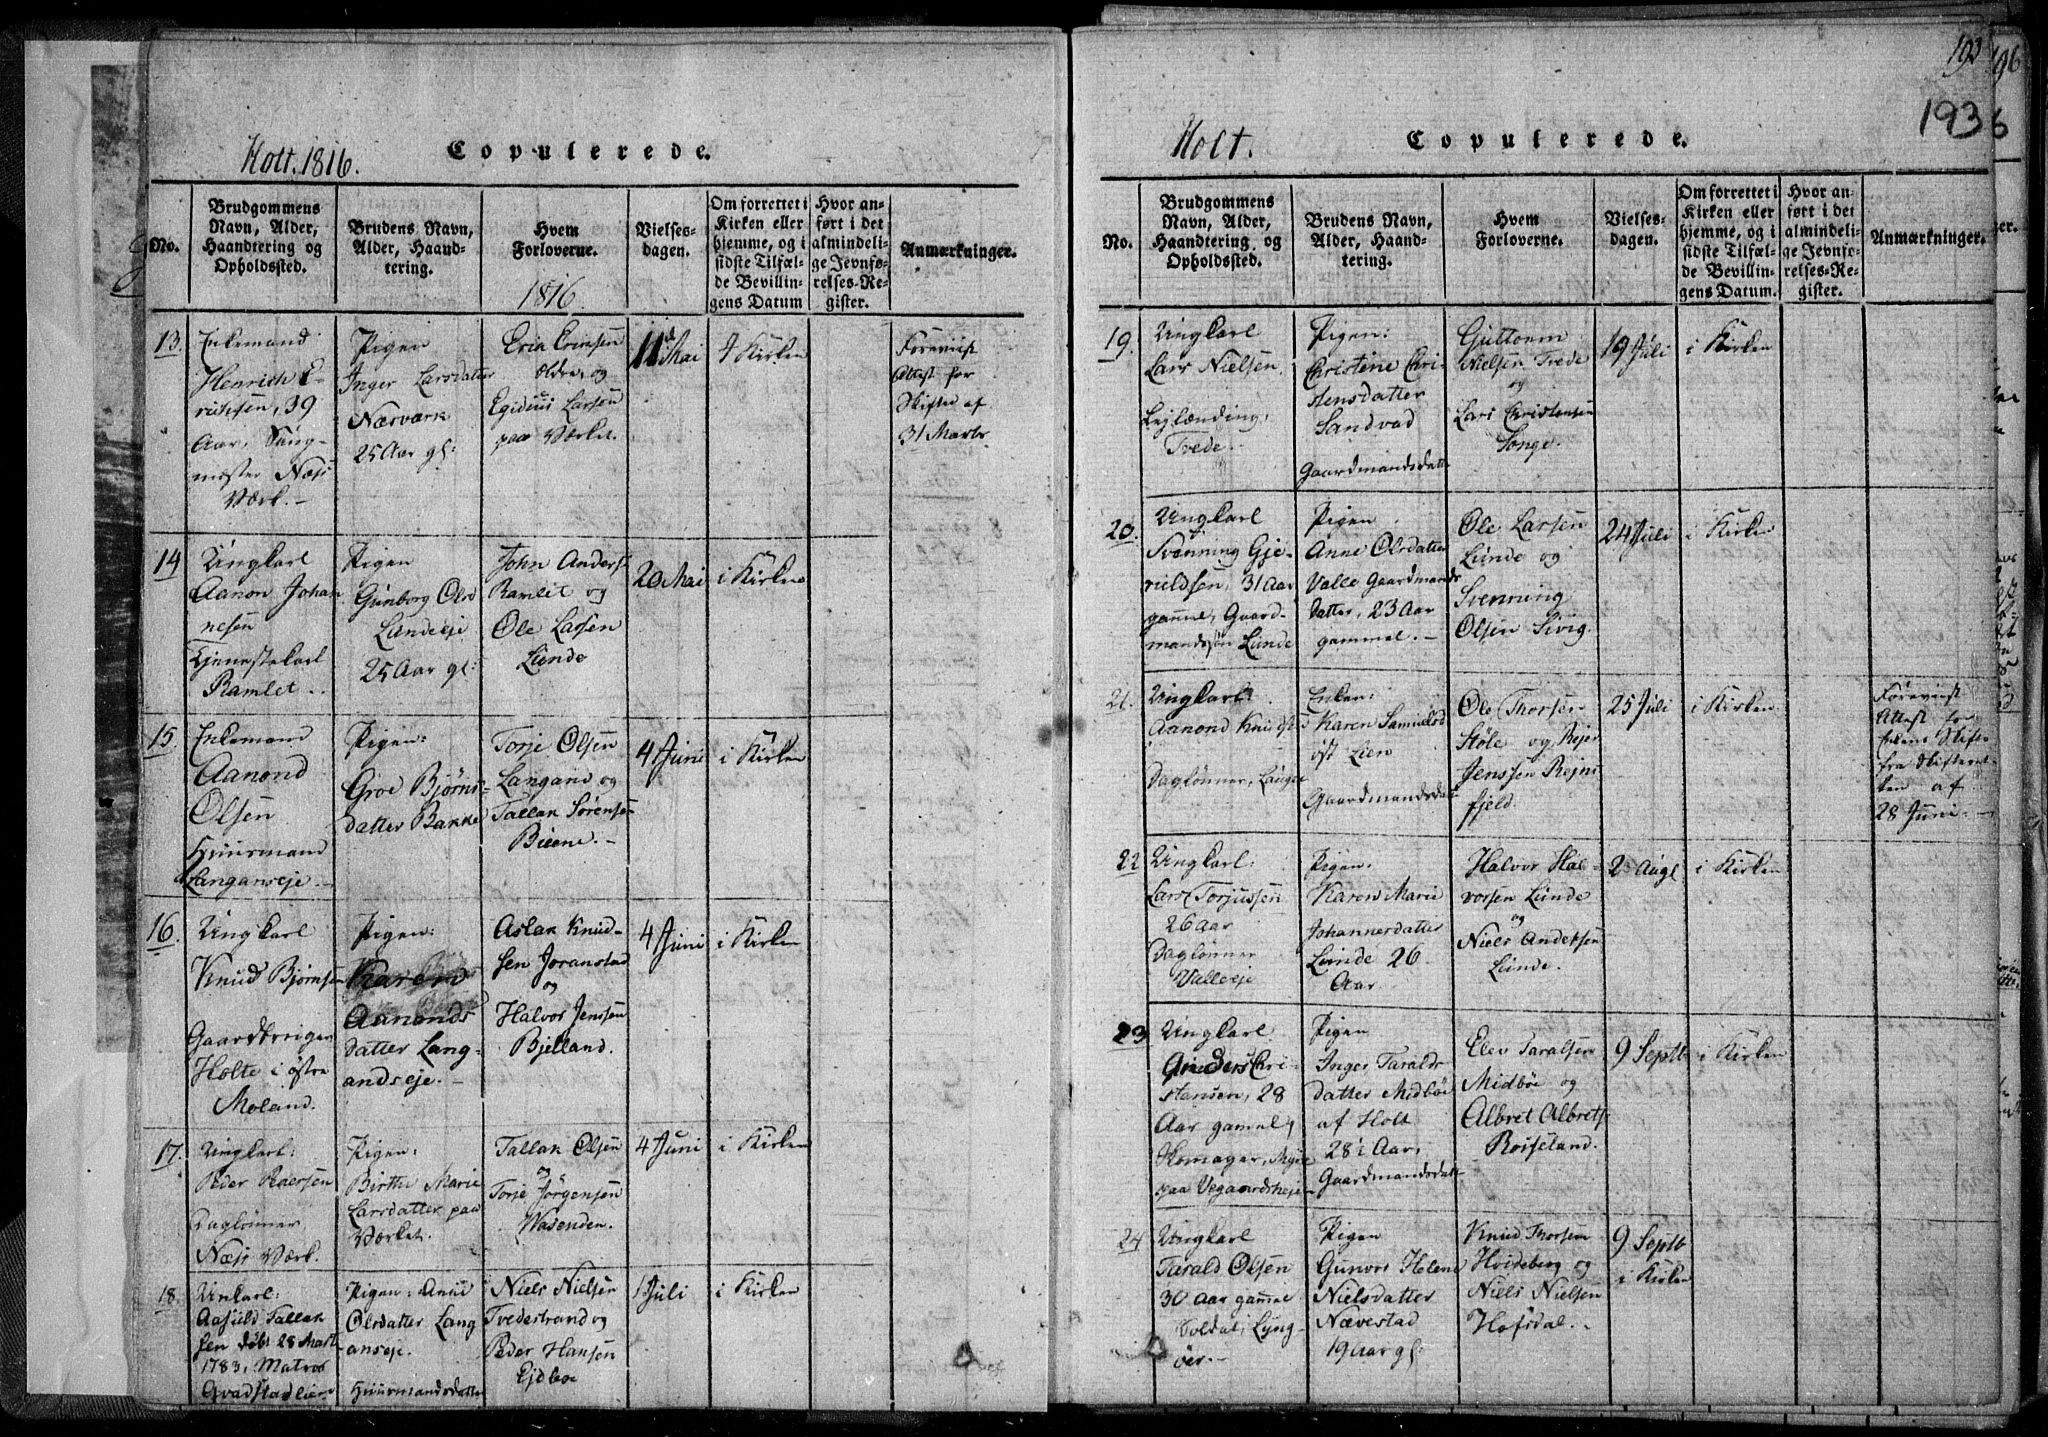 Holt. 1816.
Copulerede.
No.
Brudgommens
Navn, Alder,
Haandtering og
Opholdssted.
Brudens Navn,
Alder, Haand-
tering.
Hvem
Forloverne.
1816
Vielses-
dagen.
Om forrettet i
Kirken eller
hjemme, og i
sidste Tilfæl-
de Bevillin-
gens Datum
Hvor an-
ført i det
almindeli-
ge Jevnfø-
relses-Re-
gister.
Anmærkninger.
13.
Enkemand
Henrich E-
richsen, 39
Aar,
mester Næs
Værk. -
Pigen
Inger Larsdatter
Nærvark
25 Aar gl:
Erik Erichsen
ældre, og
Egidius Larsen
paa Værket.
11 Mai
i Kirken
Foreviist
Attest for
Skifte af
31 Marts
14
Ungkarl
Aanon Johan
nesen
Tjenestekarl
Ramlet.
Pigen
Gunborg Olsd
Landeeje
25 Aar gl:
John Anders
Ramlet og
Ole Larsen
Lunde
20 Mai
i Kirken
15.
Enkemand
Aanond
Olsen
Huusmand
Langanseje. -
Pigen:
Groe Bjørns-
datter Bakke
Torje Olsen
Langang og
Tallak Sørensen
Biene. -
4 Juni
i Kirken
16.
Ungkarl
Knud Bjørnsen
Holte i østre
Moland.
Pigen:
Karen
Aanonds
datter Lang-
andseje. -
Aslak Knud-
sen Joranstad
og
Halvor Jenssen
Bjelland.
4 Juni
i Kirken
17.
Ungkarl:
Peder Pedersen
Daglønner
Næss Værk.
Pigen:
Birthe Marie
Larsdatter paa
Værket.
Tallak Olsen
og
Torje Jørgensen
Wasenden.
4 Juni
i Kirken
18.
Unkarl:
Aasuld Tallak
sen døbt 28 Mart
1783, Matros
Qvadstadlien
Pigen: Anne
Olsdatter Lang
anseje.
Huusmandsdatter
Niels Nielsen
Tvedestrand og
Peder Hansen
Ejdboe
1 Juli
i Kirken
193
193
Holt.
Copulerede.
No.
Brudgommens
Navn, Alder,
Haandtering og
Opholdssted.
Brudens Navn,
Alder, Haand-
tering.
Hvem
Forloverne.
Vielses-
dagen.
Om forrettet i
Kirken eller
hjemme, og i
sidste Tilfæl-
de Bevillin-
gens Datum.
Hvor an-
ført i det
almindeli-
ge Jevnfø-
relses-Re-
gister.
Anmærkninger.
19.
Ungkarl
Lars Nielsen
Lejlænding,
Tvede.
Pigen:
Christine Chri-
stensdatter
Sandvad
Gaardmandsdatter
Guttorm
Nielsen Tvede
og
Lars Christensen
Songe.
19 Juli
i Kirken
20.
Ungkarl
Svenning Gje-
ruldsen, 31 Aar
gamel, Gaard-
mandssøn Lunde
Pigen
Anne Olsdatter
Valle Gaardmands
datter, 23 Aar
gammel. -
Ole Larsen
Lunde og
Svenning
Olsen Sivig.
24 Juli
i Kirken
21.
Ungkarl:
Aanond Knudse
Daglønner, Lauget
Enken:
Karen Samuelsd
øst Lien
Gaardmandsdatt
Ole Thorsen
Støle og Rejer
Jenssen Rejns
fjeld.
25 Juli
i Kirken
Foreviist
Attest for
Enkens Skifte
fra Skifteret-
ten af
28 Juni. -
22
Ungkarl:
Lars Torjussen
26 Aar
Daglønner
Valleeje
Pigen.
Karen Marie
Johannesdatter
Lunde 26
Aar.
Halvor Hal-
vorsen Lunde
og
Niels Andersen
Lunde.
2 Augl
i Kirken
23
Ungkarl
Anders Chri-
stansen, 28
Aar gamel,
Skomager, Myre
paa Vegaardsheje
Pigen
Inger Taralds
datter Midbøe
af Holt
28 i Aar,
Gaardmandsdatt
Elev Taralsen
Midbøe og
Albret Albrets
Roiseland.
9 Septb
i Kirken
24
Ungkarl
Tarald Olsen
30 Aar gamel
Soldat, Lyng-
øer. -
Pigen
Gunvor Helene
Nielsdatter
Nævestad
19 Aar gl:
Knud Thorsen
Hvideberg og
Niels Nielsen
Hofsdal. -
9 Septb
i Kirken